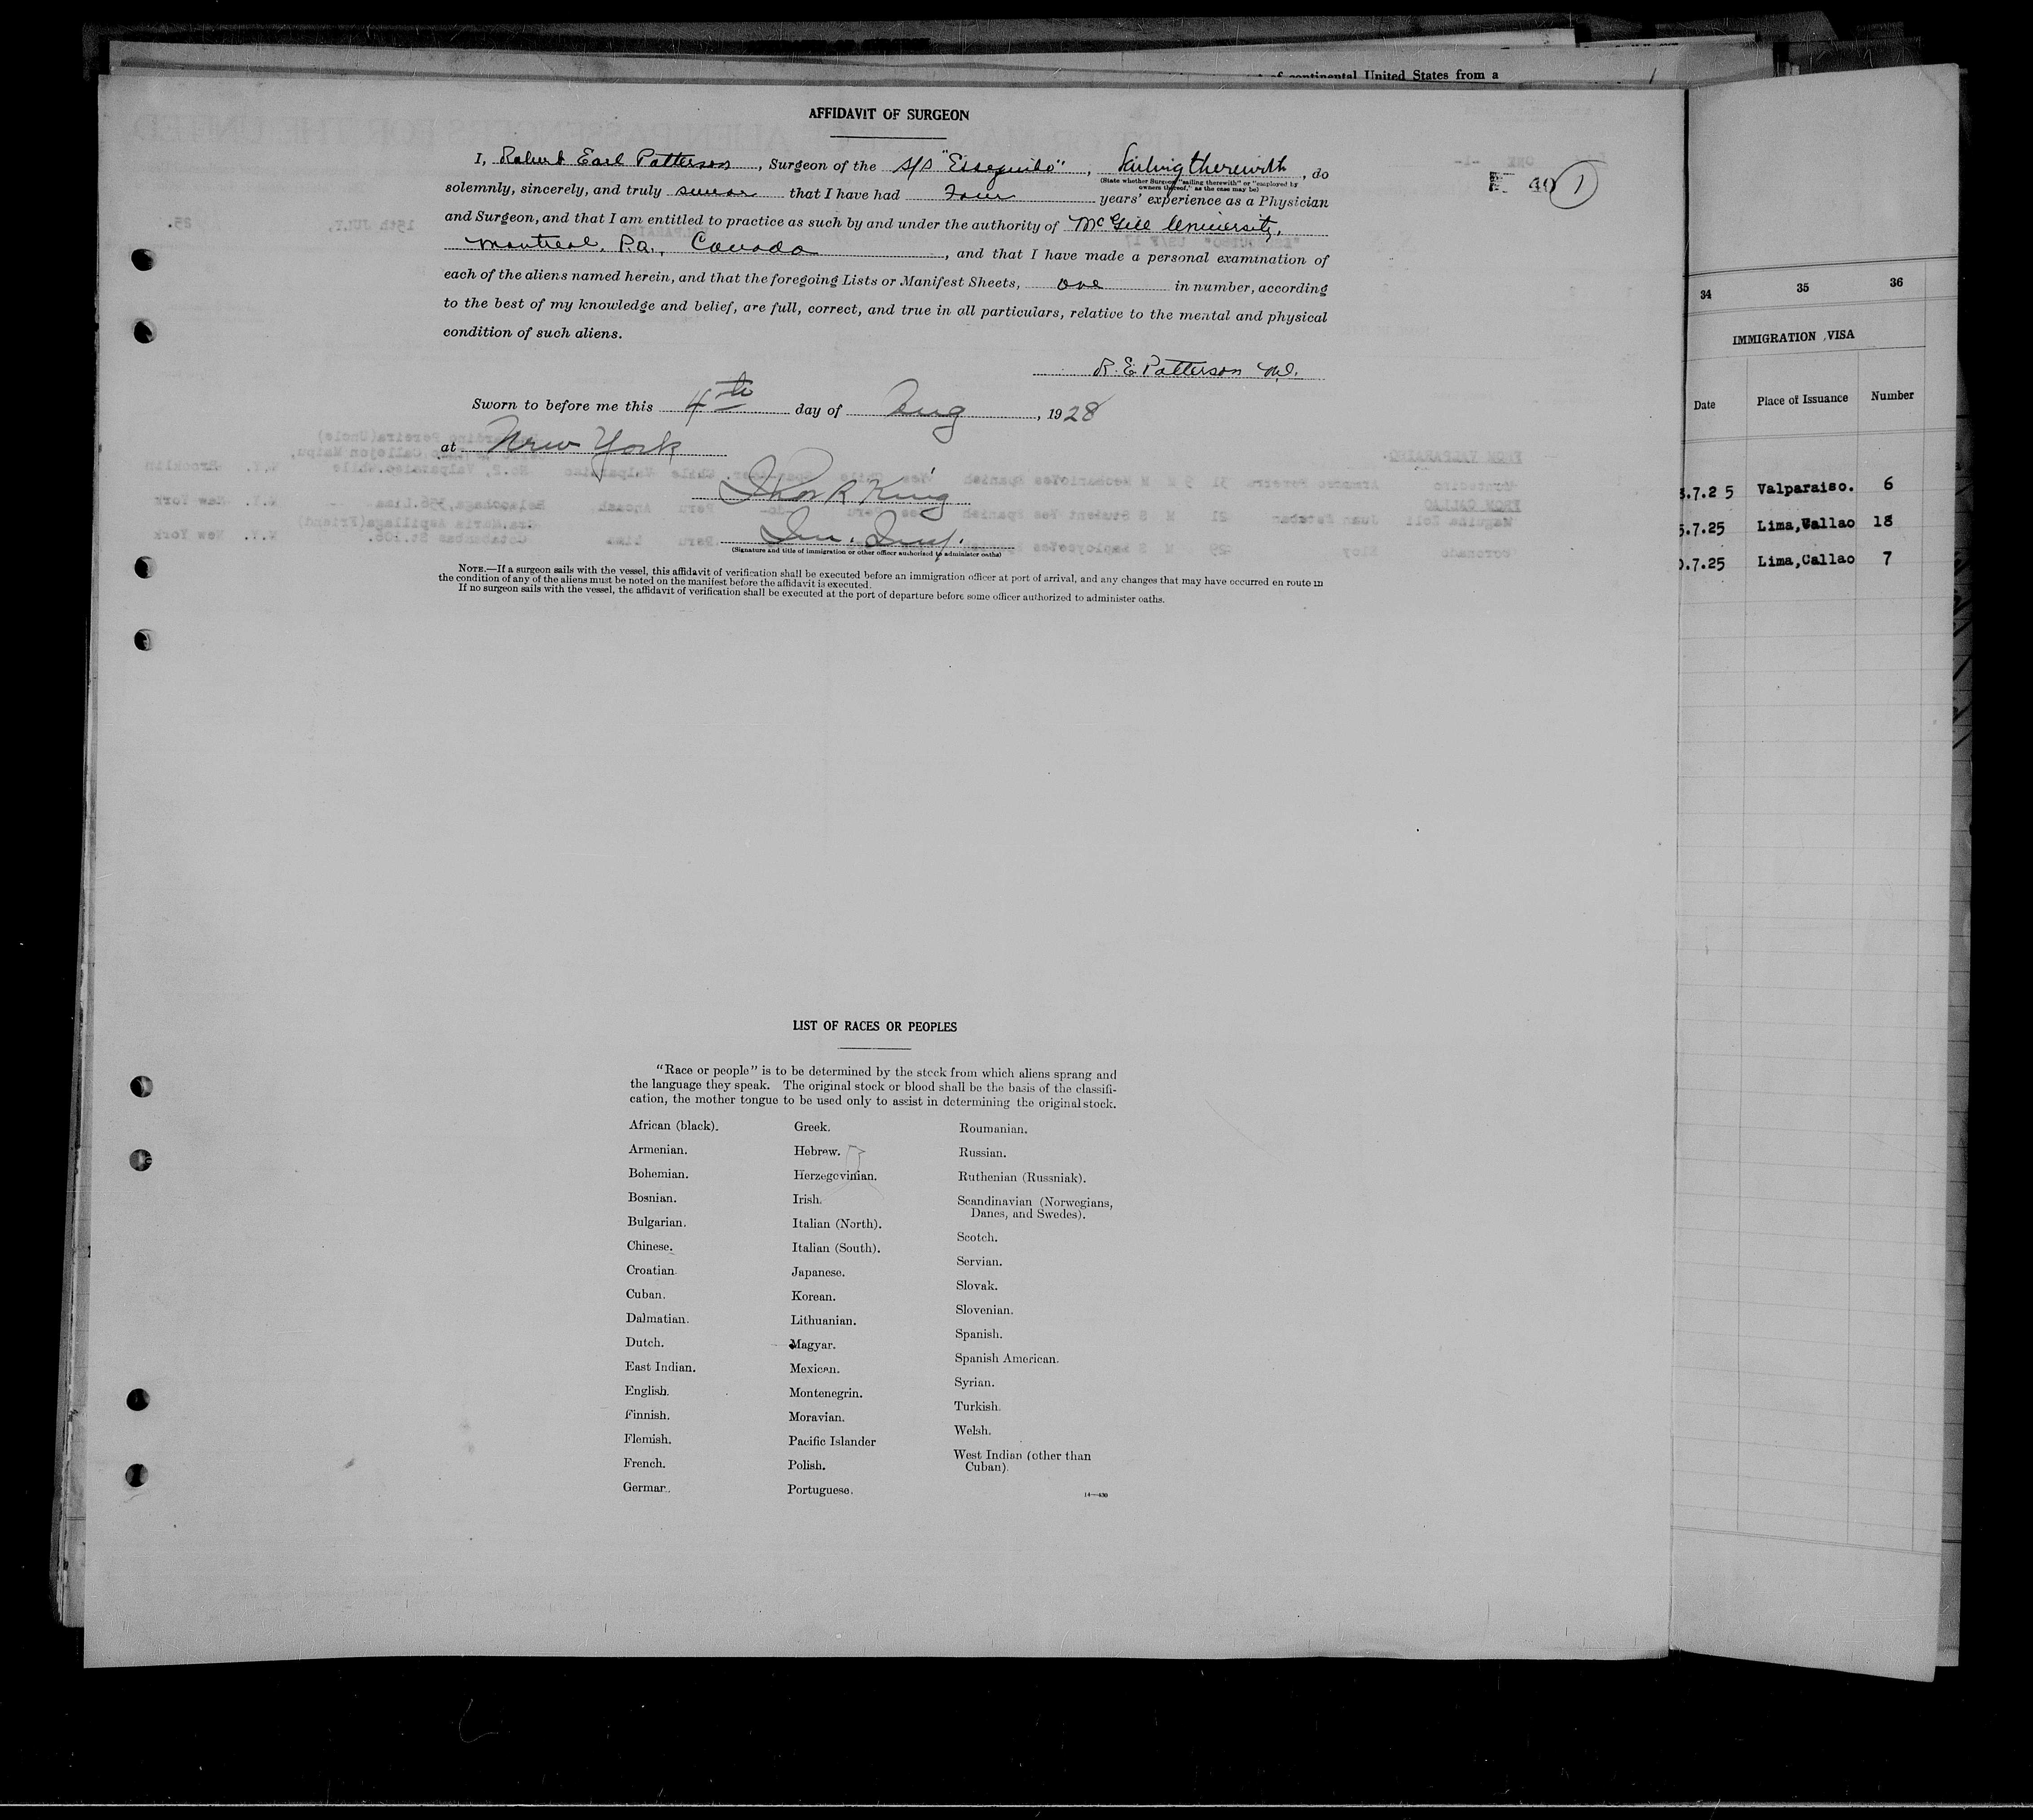 of continental United States from a
AFFIDAVIT OF SURGEON
I, Robert Earl Patterson, Surgeon of the S/S "Essequibo", Sailing therewith, do
(State whether Surgeon "sailing therewith" or "employed by
owners thereof," as the case may be)
solemnly, sincerely, and truly swear that I have had Four years' experience as a Physician
and Surgeon, and that I am entitled to practice as such by and under the authority of McGill University,
Montreal, P.Q., Canada, and that I have made a personal examination of
each of the aliens named herein, and that the foregoing Lists or Manifest Sheets, one in number, according
to the best of my knowledge and belief, are full, correct, and true in all particulars, relative to the mental and physical
condition of such aliens.
R. E. Patterson M.D.
Sworn to before me this 4th day of Aug, 1928
at New York
King
(Signature and title of immigration or other officer authorized to administer oaths)
NOTE.—If a surgeon sails with the vessel, this affidavit of verification shall be executed before an immigration officer at port of arrival, and any changes that may have occurred en route in
the condition of any of the aliens must be noted on the manifest before the affidavit is executed.
If no surgeon sails with the vessel, the affidavit of verification shall be executed at the port of departure before some officer authorized to administer oaths.
40 1
34 35 36
IMMIGRATION VISA
Date Place of Issuance Number
.7.25 Valparaiso. 6
.7.25 Lima, Callao 18
.7.25 Lima,Callao 7
LIST OF RACES OR PEOPLES
"Race or people" is to be determined by the stock from which aliens sprang and
the language they speak. The original stock or blood shall be the basis of the classifi-
cation, the mother tongue to be used only to assist in determining the original stock.
African (black).
Armenian.
Bohemian.
Bosnian.
Bulgarian.
Chinese.
Croatian.
Cuban.
Dalmatian.
Dutch.
East Indian.
English.
Finnish.
Flemish.
French.
German.
Greek.
Hebrew.
Herzegovinian.
Irish.
Italian (North).
Italian (South).
Japanese.
Korean.
Lithuanian.
Magyar.
Mexican.
Montenegrin.
Moravian.
Pacific Islander
Polish.
Portuguese.
Roumanian.
Russian.
Ruthenian (Russniak).
Scandinavian (Norwegians,
Danes, and Swedes).
Scotch.
Servian.
Slovak.
Slovenian.
Spanish.
Spanish American.
Syrian.
Turkish.
Welsh.
West Indian (other than
Cuban).
14—430